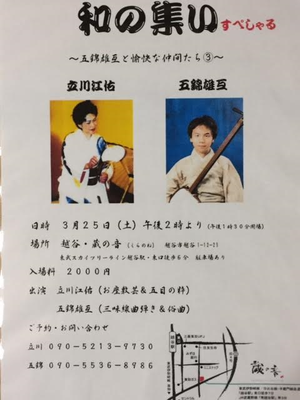 和の集い すぺしゃる
〜五錦雄互と愉快な仲間たち⑨〜
立川江佑 五錦雄互
日時 3月25日(土)午後2時より(午後1時30分開場)
場所 越谷・蔵の音[くらのね] 越谷市越谷1-12-2
東武スカイツリーライン越谷駅・東口徒歩6分 駐車場あり
入場料 2000円
出演 立川江佑(お座敷芸&五目の粋)
五錦雄互(三味線曲弾き&俗曲)
ご予約・お問い合わせ
立川 090-5213-9730
五錦 090-5536-8986